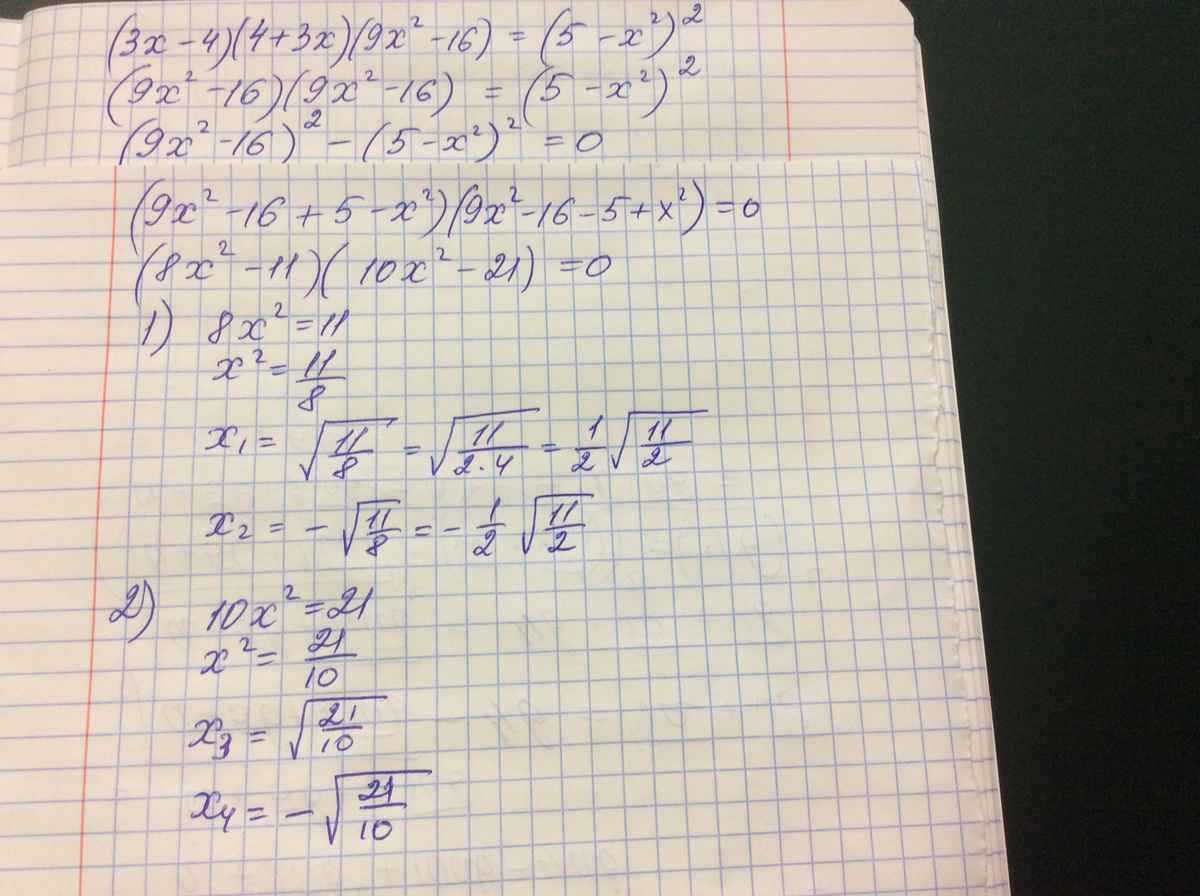 (3x-4)(4+3x)(9x²-16) = (5-x²)²
(9x²-16)(9x²-16) = (5-x²)²
(9x²-16)² - (5-x²)² = 0
(9x²-16+5-x²)(9x²-16-5+x²)=0
(8x²-11)(10x²-21)=0
1) 8x²=11
x²=11/8
x₁=√(11/8)=√(11/(2·4))=1/2√(11/2)
x₂=-√(11/8)=-1/2√(11/2)
2) 10x²=21
x²=21/10
x₃=√(21/10)
x₄=-√(21/10)